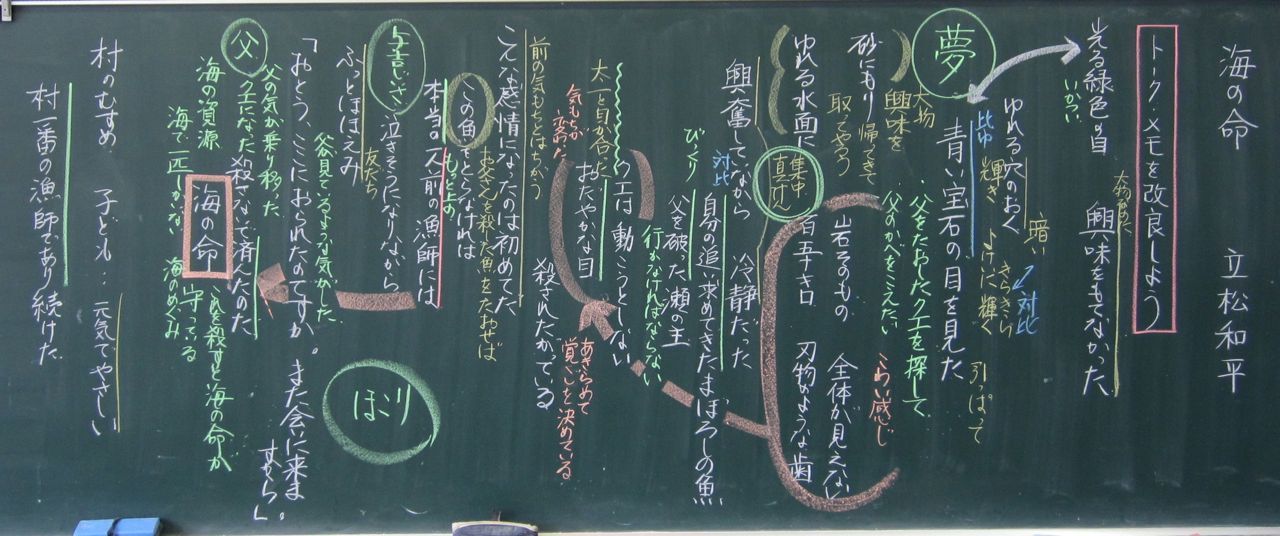 海の命　立松和平
トーク・メモを改良しよう
光る緑色の目　興味をもてなかった
いかつい
ゆれる穴のおく　暗い
対比
輝き
きらきら
比ゆ
夢
青い宝石の目を見た
引っぱって
大物
興味を
父をたおしたクエを探して
父のかべをこえたい
こわい感じ
砂にもり　帰ってきて
取ってやろう
岩そのもの　全体が見えない
ゆれる水面に
百五十キロ　刃物のような歯
集中
真けん
興奮していながら　冷静だった
対比
自分の追い求めてきたまぼろしの魚
びっくり
父を破った瀬の主
行かなければならない
太一と目が合った
クエは動こうとしない
おだやかな目
気もちが
変わった
あきらめて
覚ごを決めている
殺されたがっている
前の気もちとはちがう
こんな感情になったのは初めてだ
お父さんを殺した魚をたおせば
この魚をとらなければ
もっと上の
本当の一人前の漁師には
泣きそうになりながら
友だち
ふっとほほえみ
ほこり
「おとう、ここにおられたのですか。また会いに来ますから」。
父が見ているような気がした
父の気が乗り移った
父
クエになった　殺さないで済んだのだ
海の命
これを殺すと海の命が
守っている
海の資源
海で一匹しかない　海のめぐみ
村のむすめ　子ども…元気でやさしい
村一番の漁師であり続けた